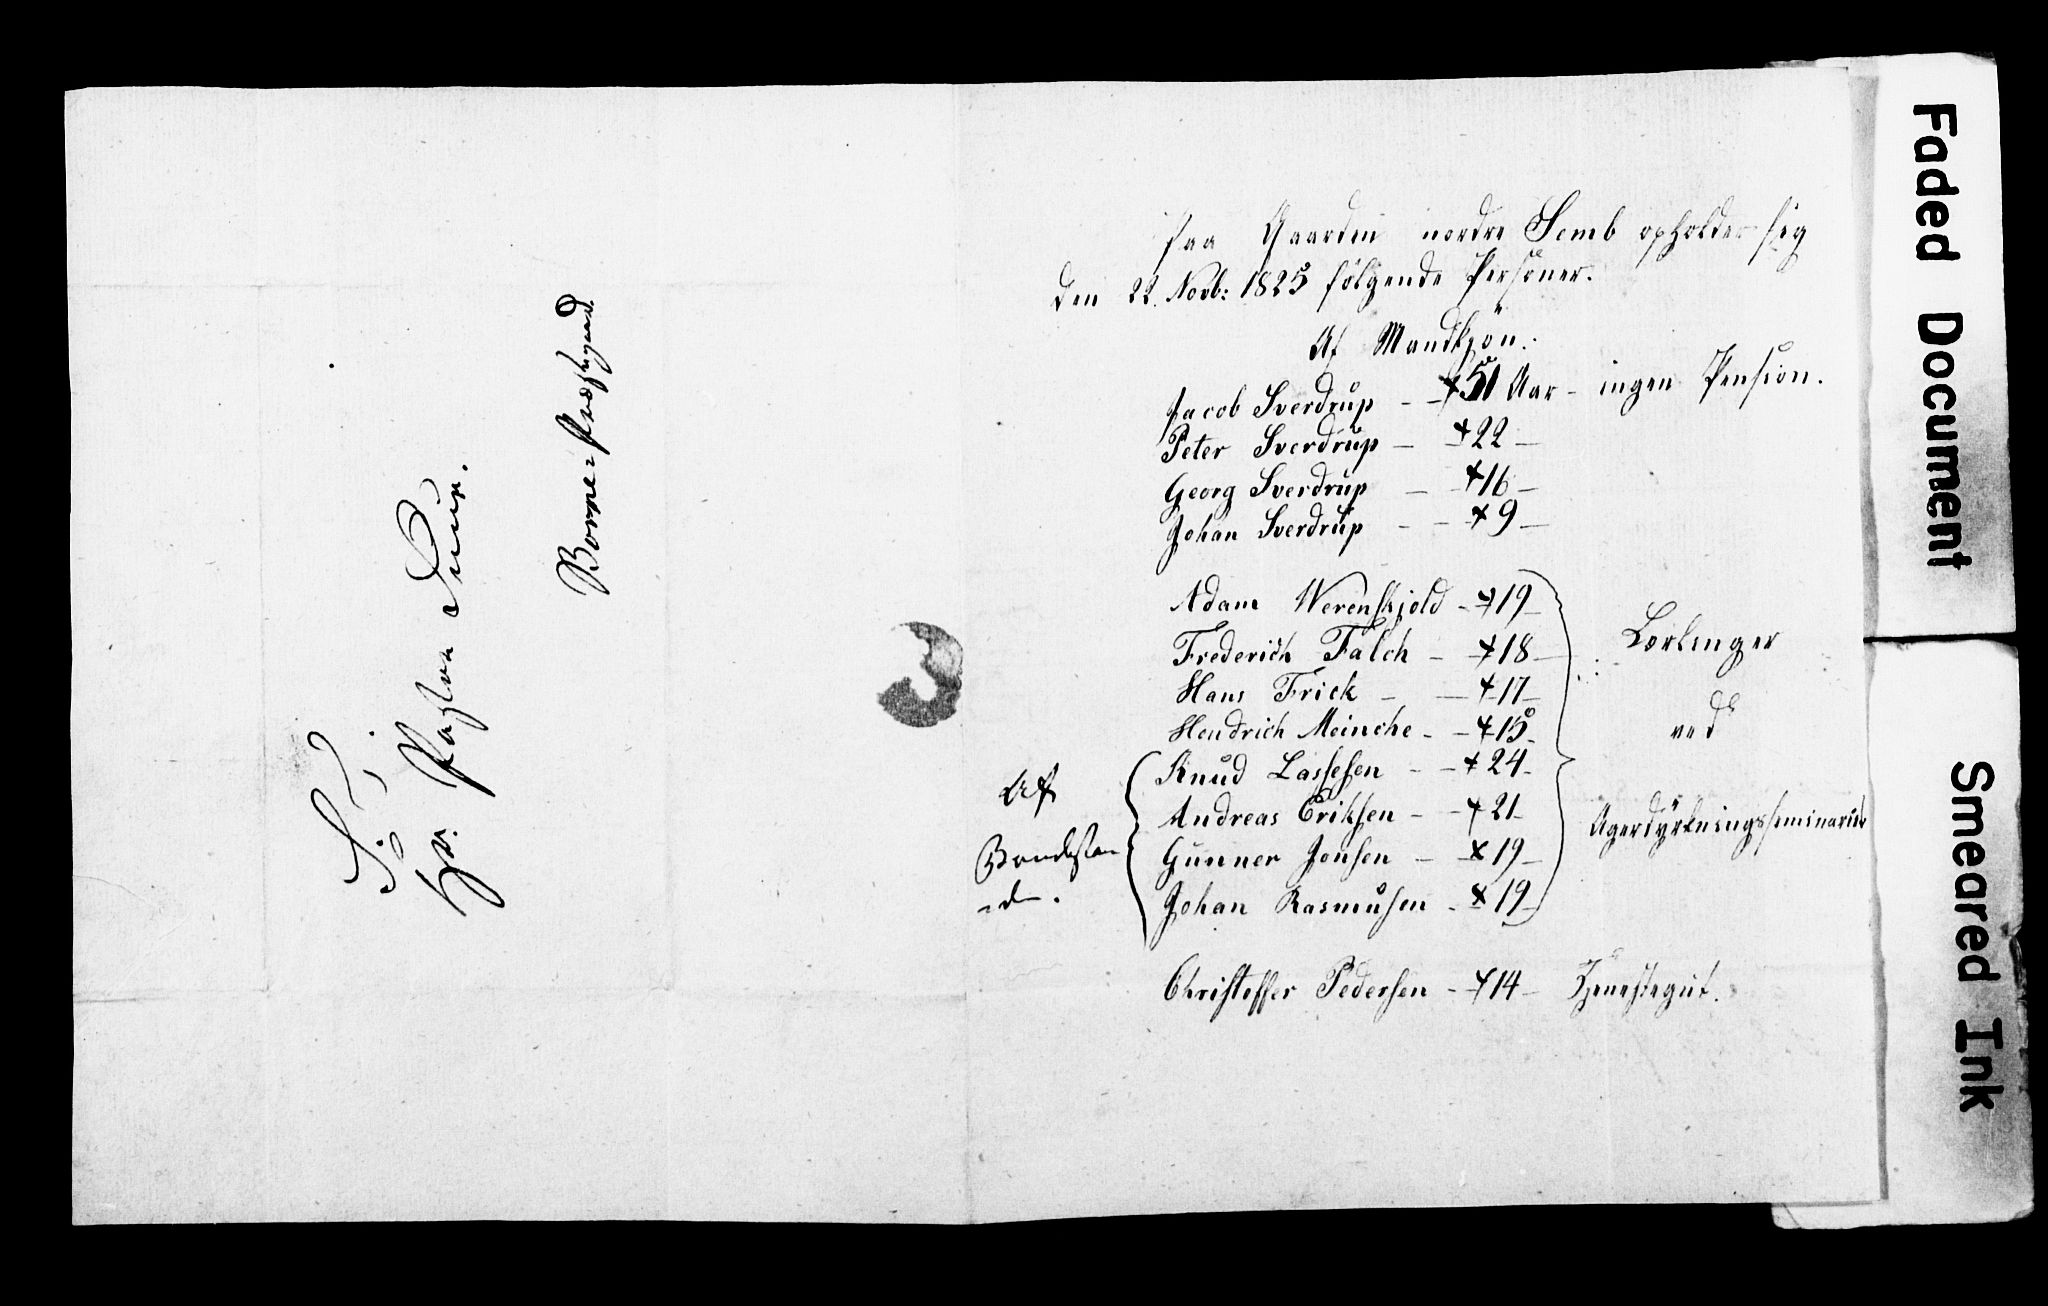 S. T.
Hr. Pastor Duus.
Borre Præstegjeld.
Paa Gaarden nordre Semb opholder sig
den 22. Novb: 1825 følgende Personer.
Af Mandkjøn.
Jacob Sverdrup - - 51 Aar - ingen Pension.
Peter Sverdrup - 22 -
Georg Sverdrup - 16 -
Johan Sverdrup - - 9 -
Adam Werenskjold - 19 -
Frederich Falch - 18 -
Hans Frick - - 17 -
Hendrich Meinche - - 15 -
Knud Lassesen - - 24 -
Andreas Eriksen - - 21 -
Gunner Jensen - 19 -
Johan Rasmusen - 19 -
Lærlinger
ved
Agerdyrkningsseminariet
Af
Bondestan
-den.
Christoffer Pedersen - 14 - Tjenestegut.
Faded Document
Smeared Ink